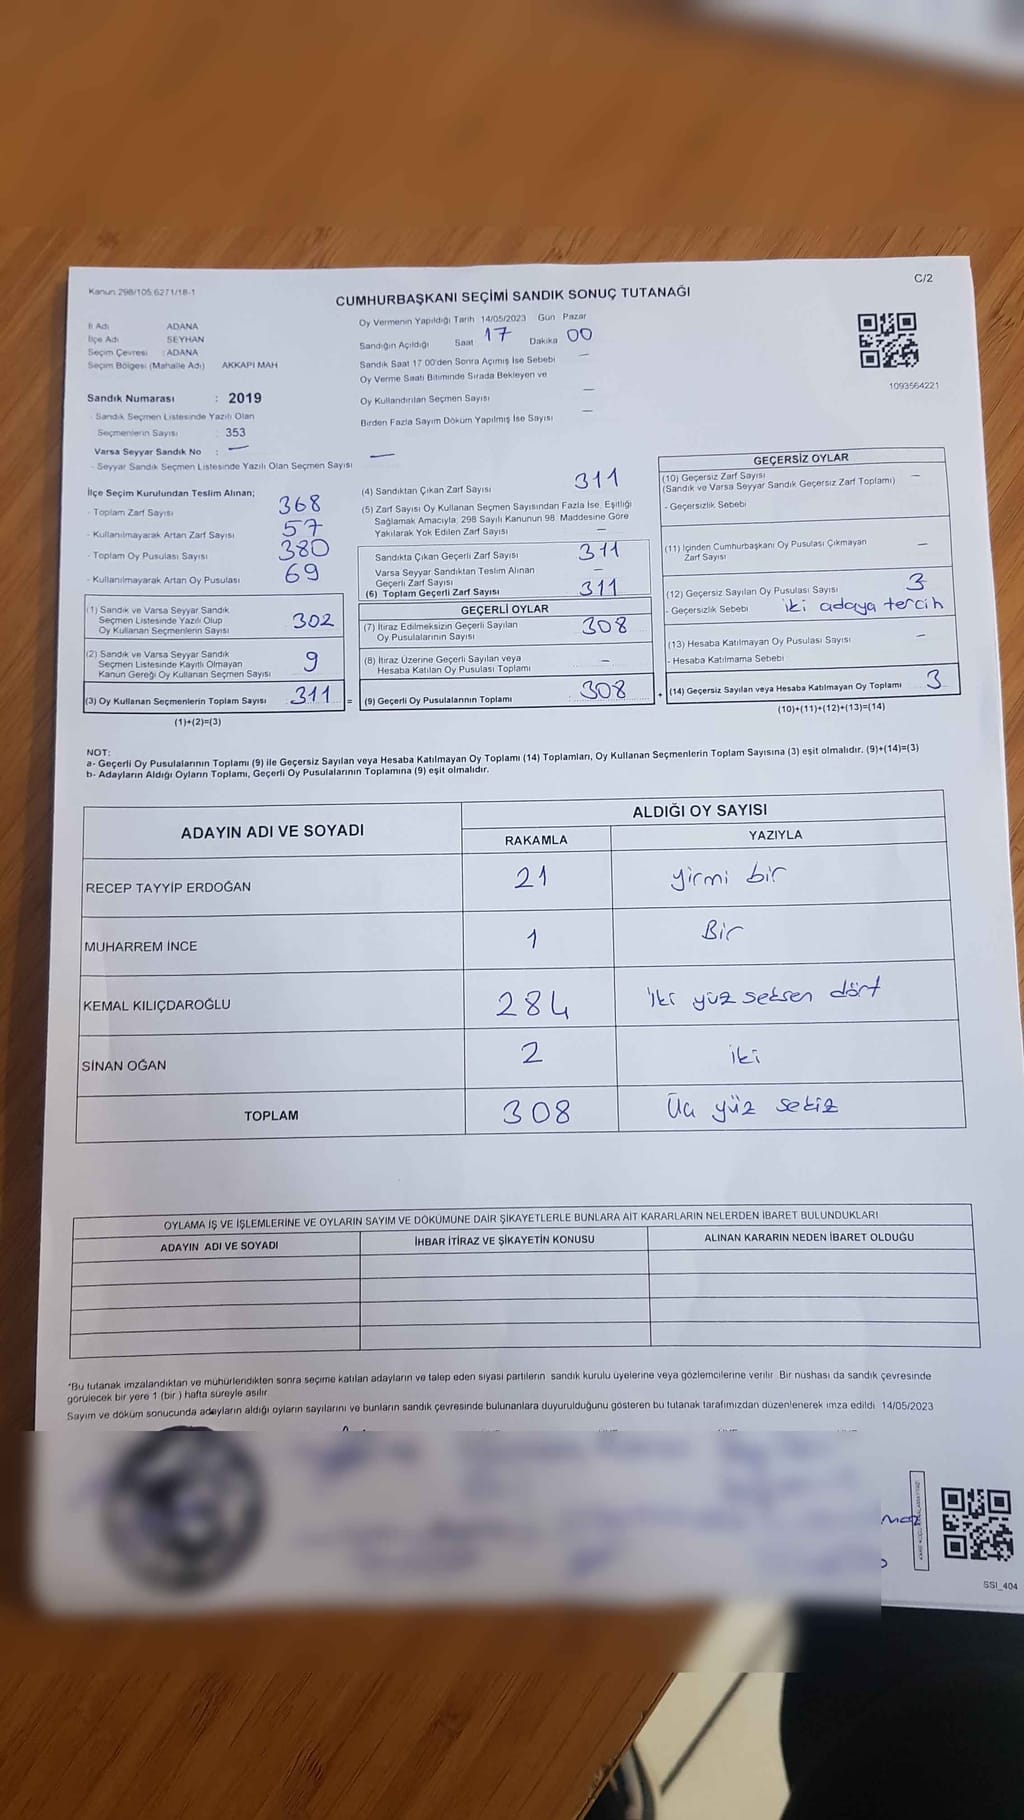 C/2
Kanun:298/105;6271/18-1
CUMHURBAŞKANI SEÇİMİ SANDIK SONUÇ TUTANAĞI
İl Adı ADANA
İlçe Adı SEYHAN
Seçim Çevresi : ADANA
Seçim Bölgesi (Mahalle Adı) AKKAPI MAH
Sandık Numarası : 2019
- Sandık Seçmen Listesinde Yazılı Olan
Seçmenlerin Sayısı : 353
Varsa Seyyar Sandık No : —
- Seyyar Sandık Seçmen Listesinde Yazılı Olan Seçmen Sayısı —
Oy Vermenin Yapıldığı Tarih 14/05/2023 Gün Pazar
Sandığın Açıldığı Saat 17 Dakika 00
Sandık Saat 17:00'den Sonra Açımış İse Sebebi —
Oy Verme Saati Bitiminde Sırada Bekleyen ve
Oy Kullandırılan Seçmen Sayısı —
Birden Fazla Sayım Döküm Yapılmış İse Sayısı —
1093564221
İlçe Seçim Kurulundan Teslim Alınan;
- Toplam Zarf Sayısı 368
- Kullanılmayarak Artan Zarf Sayısı 57
- Toplam Oy Pusulası Sayısı 380
- Kullanılmayarak Artan Oy Pusulası 69
(1) Sandık ve Varsa Seyyar Sandık
Seçmen Listesinde Yazılı Olup
Oy Kullanan Seçmenlerin Sayısı 302
(2) Sandık ve Varsa Seyyar Sandık
Seçmen Listesinde Kayıtlı Olmayan
Kanun Gereği Oy Kullanan Seçmen Sayısı 9
(3) Oy Kullanan Seçmenlerin Toplam Sayısı 311 =
(1)+(2)=(3)
(4) Sandıktan Çıkan Zarf Sayısı 311
(5) Zarf Sayısı Oy Kullanan Seçmen Sayısından Fazla İse, Eşitliği
Sağlamak Amacıyla; 298 Sayılı Kanunun 98. Maddesine Göre
Yakılarak Yok Edilen Zarf Sayısı —
Sandıkta Çıkan Geçerli Zarf Sayısı 311
Varsa Seyyar Sandıktan Teslim Alınan
Geçerli Zarf Sayısı —
(6) Toplam Geçerli Zarf Sayısı 311
GEÇERLİ OYLAR
(7) İtiraz Edilmeksizin Geçerli Sayılan
Oy Pusulalarının Sayısı 308
(8) İtiraz Üzerine Geçerli Sayılan veya
Hesaba Katılan Oy Pusulası Toplamı —
(9) Geçerli Oy Pusulalarının Toplamı 308 +
GEÇERSİZ OYLAR
(10) Geçersiz Zarf Sayısı —
(Sandık ve Varsa Seyyar Sandık Geçersiz Zarf Toplamı)
- Geçersizlik Sebebi
(11) İçinden Cumhurbaşkanı Oy Pusulası Çıkmayan
Zarf Sayısı —
(12) Geçersiz Sayılan Oy Pusulası Sayısı 3
- Geçersizlik Sebebi iki adaya tercih
(13) Hesaba Katılmayan Oy Pusulası Sayısı —
- Hesaba Katılmama Sebebi
(14) Geçersiz Sayılan veya Hesaba Katılmayan Oy Toplamı 3
(10)+(11)+(12)+(13)=(14)
NOT:
a- Geçerli Oy Pusulalarının Toplamı (9) ile Geçersiz Sayılan veya Hesaba Katılmayan Oy Toplamı (14) Toplamları, Oy Kullanan Seçmenlerin Toplam Sayısına (3) eşit olmalıdır. (9)+(14)=(3)
b- Adayların Aldığı Oyların Toplamı, Geçerli Oy Pusulalarının Toplamına (9) eşit olmalıdır.
ADAYIN ADI VE SOYADI
ALDIĞI OY SAYISI
RAKAMLA YAZIYLA
RECEP TAYYİP ERDOĞAN 21 yirmi bir
MUHARREM İNCE 1 Bir
KEMAL KILIÇDAROĞLU 284 İki yüz seksen dört
SİNAN OĞAN 2 iki
TOPLAM 308 Üç yüz sekiz
OYLAMA İŞ VE İŞLEMLERİNE VE OYLARIN SAYIM VE DÖKÜMÜNE DAİR ŞİKAYETLERLE BUNLARA AİT KARARLARIN NELERDEN İBARET BULUNDUKLARI
ADAYIN ADI VE SOYADI İHBAR İTİRAZ VE ŞİKAYETİN KONUSU ALINAN KARARIN NEDEN İBARET OLDUĞU
*Bu tutanak imzalandıktan ve mühürlendikten sonra seçime katılan adayların ve talep eden siyasi partilerin sandık kurulu üyelerine veya gözlemcilerine verilir. Bir nüshası da sandık çevresinde
görülecek bir yere 1 (bir ) hafta süreyle asılır.
Sayım ve döküm sonucunda adayların aldığı oyların sayılarını ve bunların sandık çevresinde bulunanlara duyurulduğunu gösteren bu tutanak tarafımızdan düzenlenerek imza edildi. 14/05/2023
SSI_404